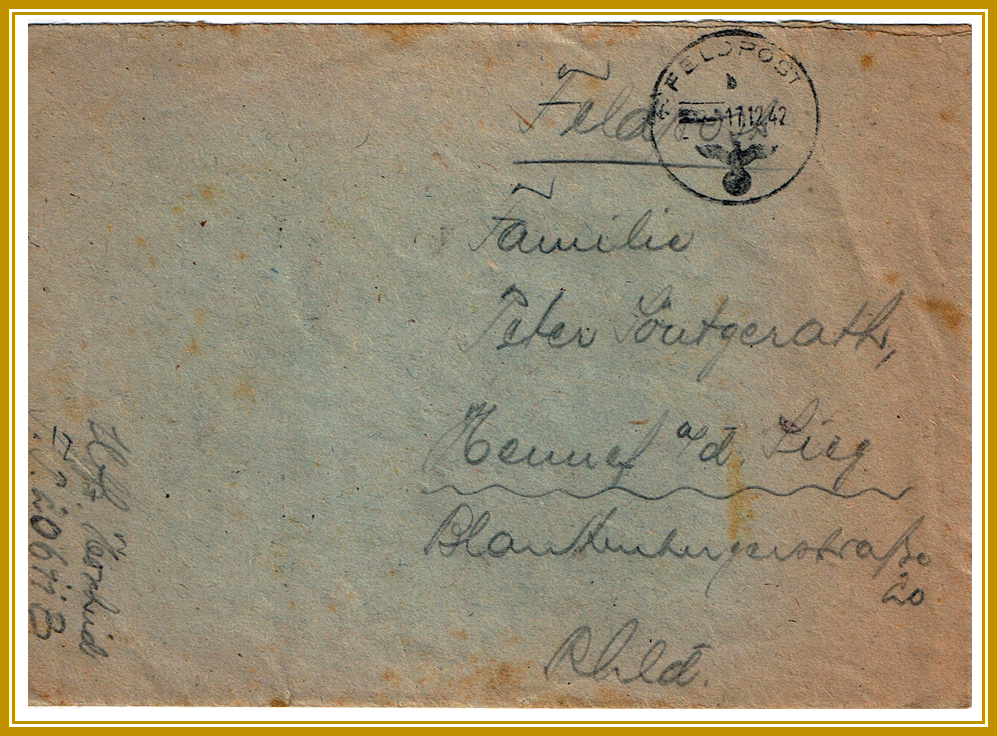 FELDPOST
b
17.12.42
Feldpost
Familie
Peter Söntgerath,
Hennef a/d. Sieg
Blankenbergerstraße
20
Rhld.
Uffz.
20611 B